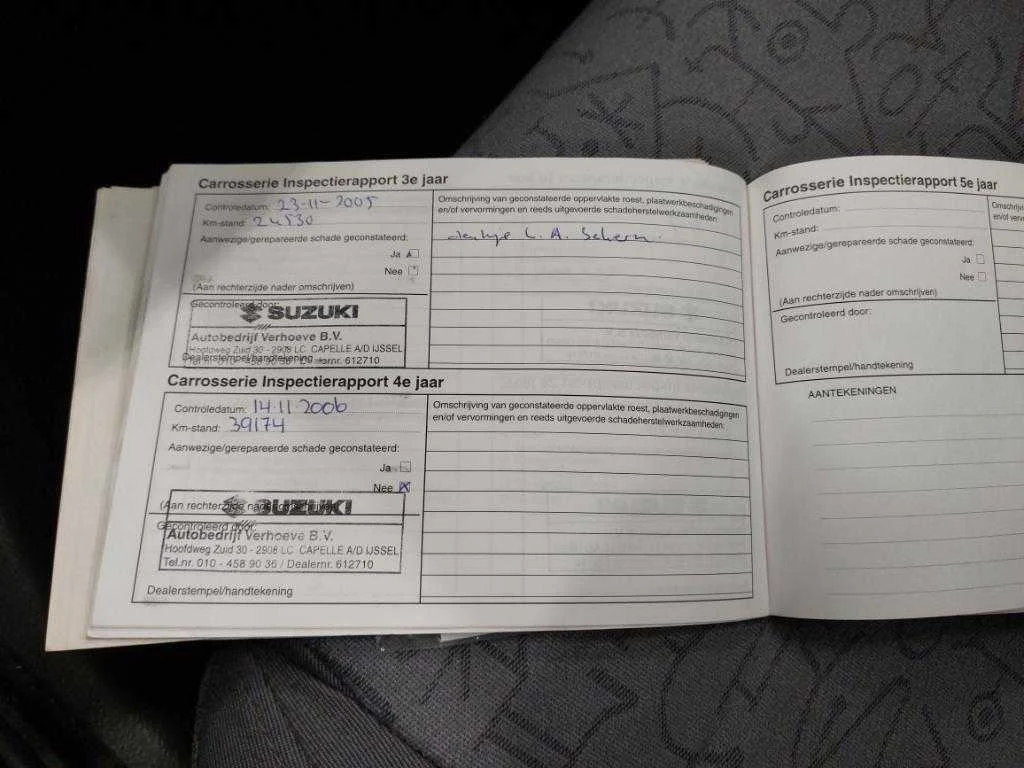 Carrosserie Inspectierapport 3e jaar
Controledatum: 23-11-2005
Km-stand: 24530
Aanwezige/gerepareerde schade geconstateerd:
Ja
Nee
(Aan rechterzijde nader omschrijven)
Gecontroleerd door:
SUZUKI
Autobedrijf Verhoeve B.V.
Hoofdweg Zuid 30 - 2908 LC CAPELLE A/D IJSSEL
Dealerstempel/handtekening
Dealernr. 612710
Omschrijving van geconstateerde oppervlakte roest, plaatwerkbeschadigingen
en/of vervormingen en reeds uitgevoerde schadeherstelwerkzaamheden:
L. A.
Carrosserie Inspectierapport 4e jaar
Controledatum: 14-11-2006
Km-stand: 39174
Aanwezige/gerepareerde schade geconstateerd:
Ja
Nee
(Aan rechterzijde nader omschrijven)
SUZUKI
Gecontroleerd door:
Autobedrijf Verhoeve B.V.
Hoofdweg Zuid 30 - 2908 LC CAPELLE A/D IJSSEL
Tel.nr. 010 - 458 90 36 / Dealernr. 612710
Dealerstempel/handtekening
Omschrijving van geconstateerde oppervlakte roest, plaatwerkbeschadigingen
en/of vervormingen en reeds uitgevoerde schadeherstelwerkzaamheden:
Carrosserie Inspectierapport 5e jaar
Controledatum:
Km-stand:
Aanwezige/gerepareerde schade geconstateerd:
Ja
Nee
(Aan rechterzijde nader omschrijven)
Gecontroleerd door:
Dealerstempel/handtekening
AANTEKENINGEN